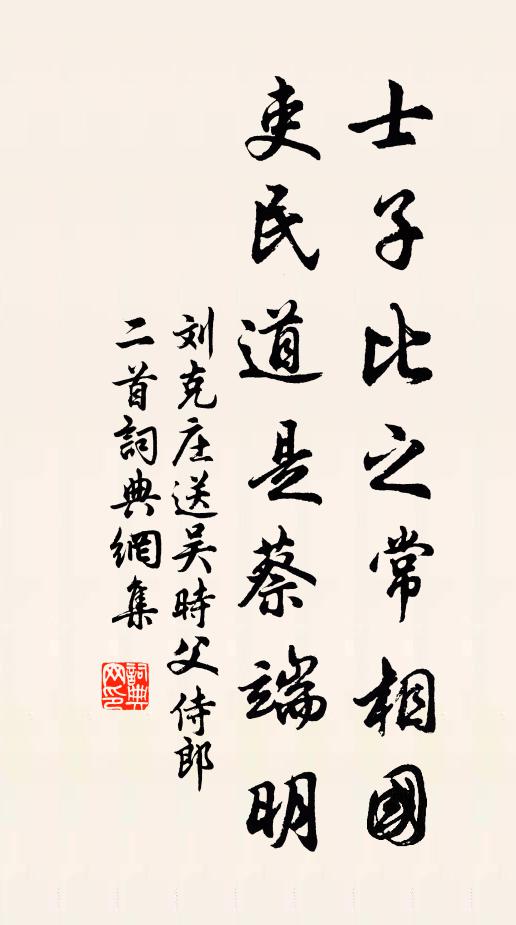 士子比之常相國
吏民道是蔡端明
刘克庄送吴時父侍郎
二首詞典網集
詞典
网印